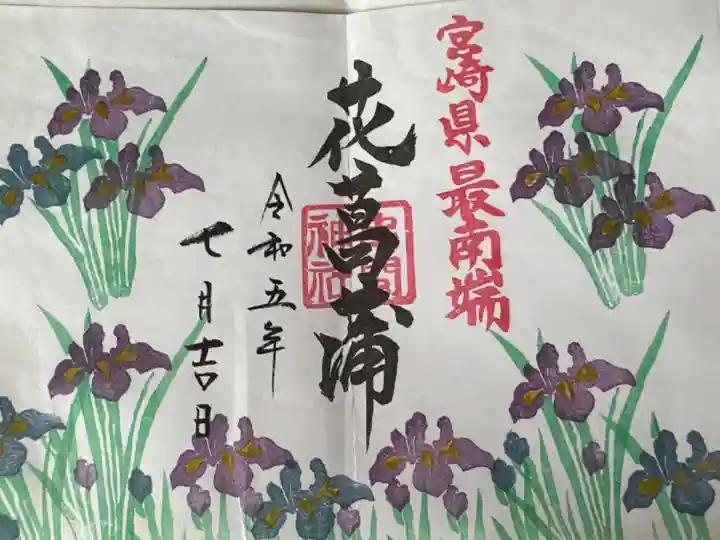 宮崎県最南端
花菖蒲
令和五年
七月吉日
神社